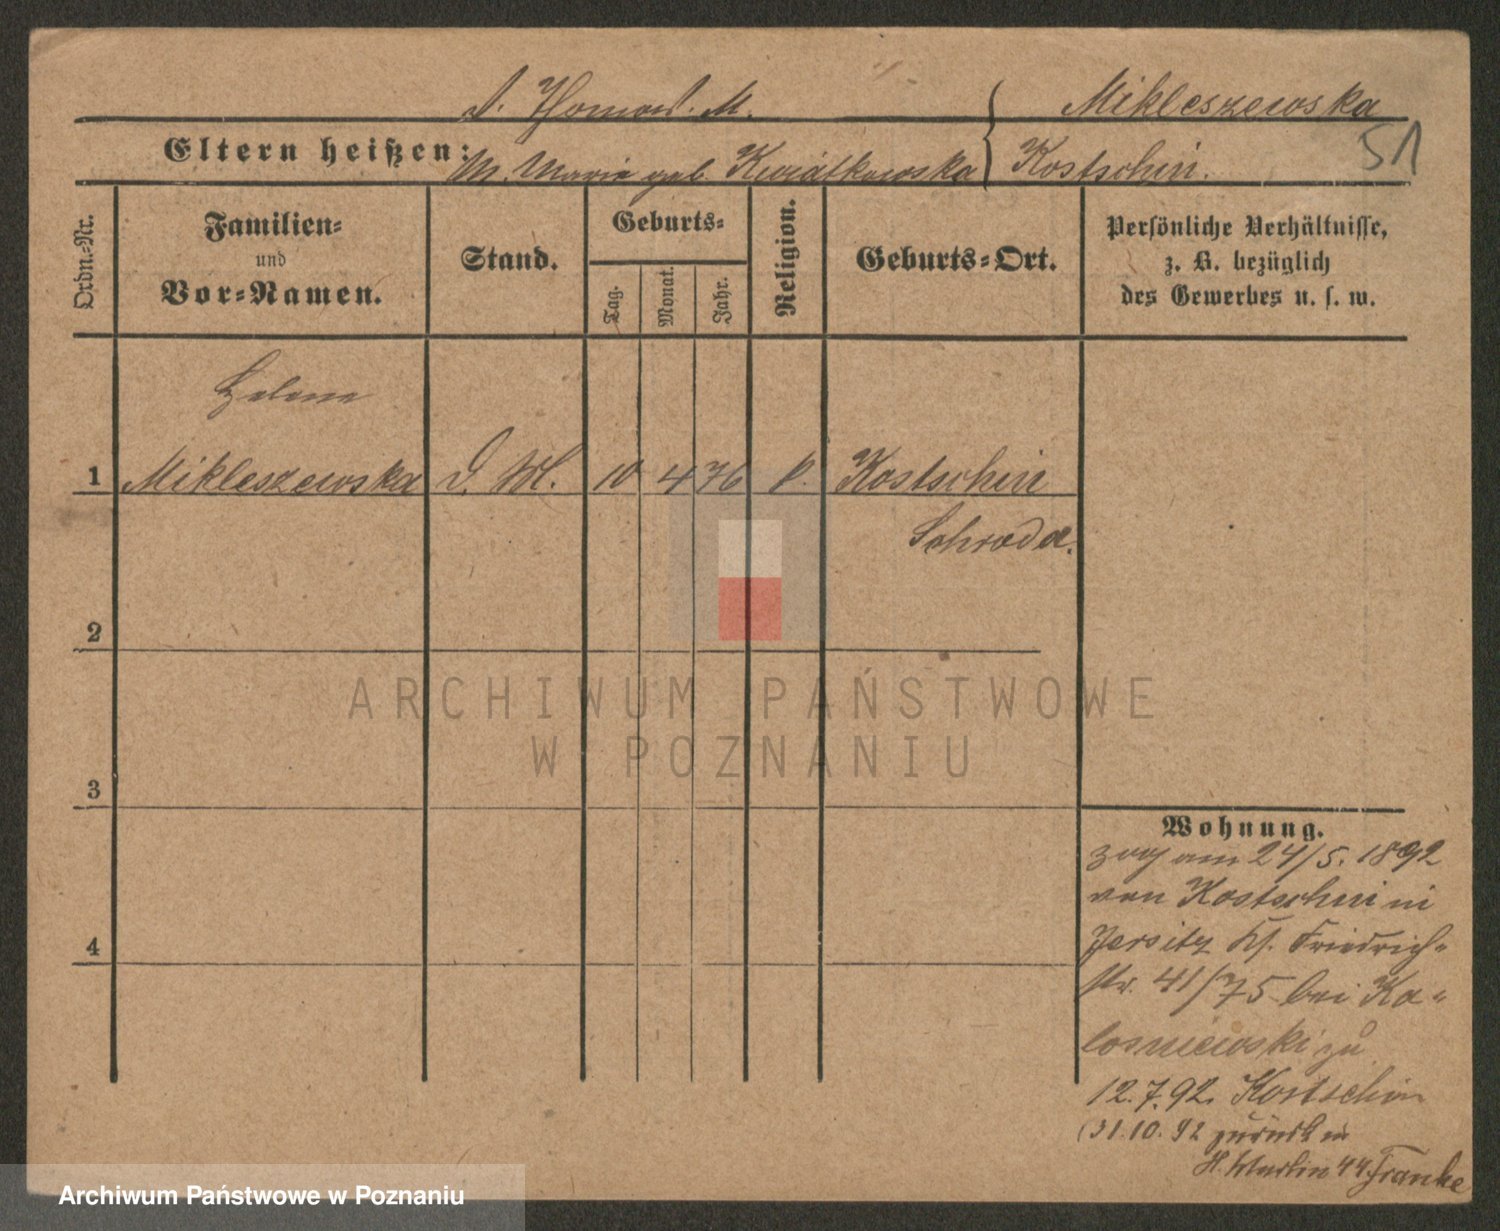 V. Thomas. M. Mikleszewska
Eltern heißen:
M. Marie geb. Kwiatkowska Kostschin.
51
Ordn.-Nr.
Familien-
und
Vor-Namen.
Stand.
Geburts-
Tag.
Monat.
Jahr.
Religion.
Geburts-Ort.
Persönliche Verhältnisse,
z. B. bezüglich
des Gewerbes u. s. w.
Helene
1 Mikleszewska D. M. 10 4 76 k. Kostschin
Schroda.
2
3
4
Wohnung.
zog am 24/5. 1892
von Kostschin in
Jersitz Kl. Friedrich-
str. 41/75 bei Ka-
losniewski zu
12.7.92. Kostschin
(31.10.92 zurück in
St. Martin 44 Franke
ARCHIWUM PAŃSTWOWE
W POZNANIU
Archiwum Państwowe w Poznaniu